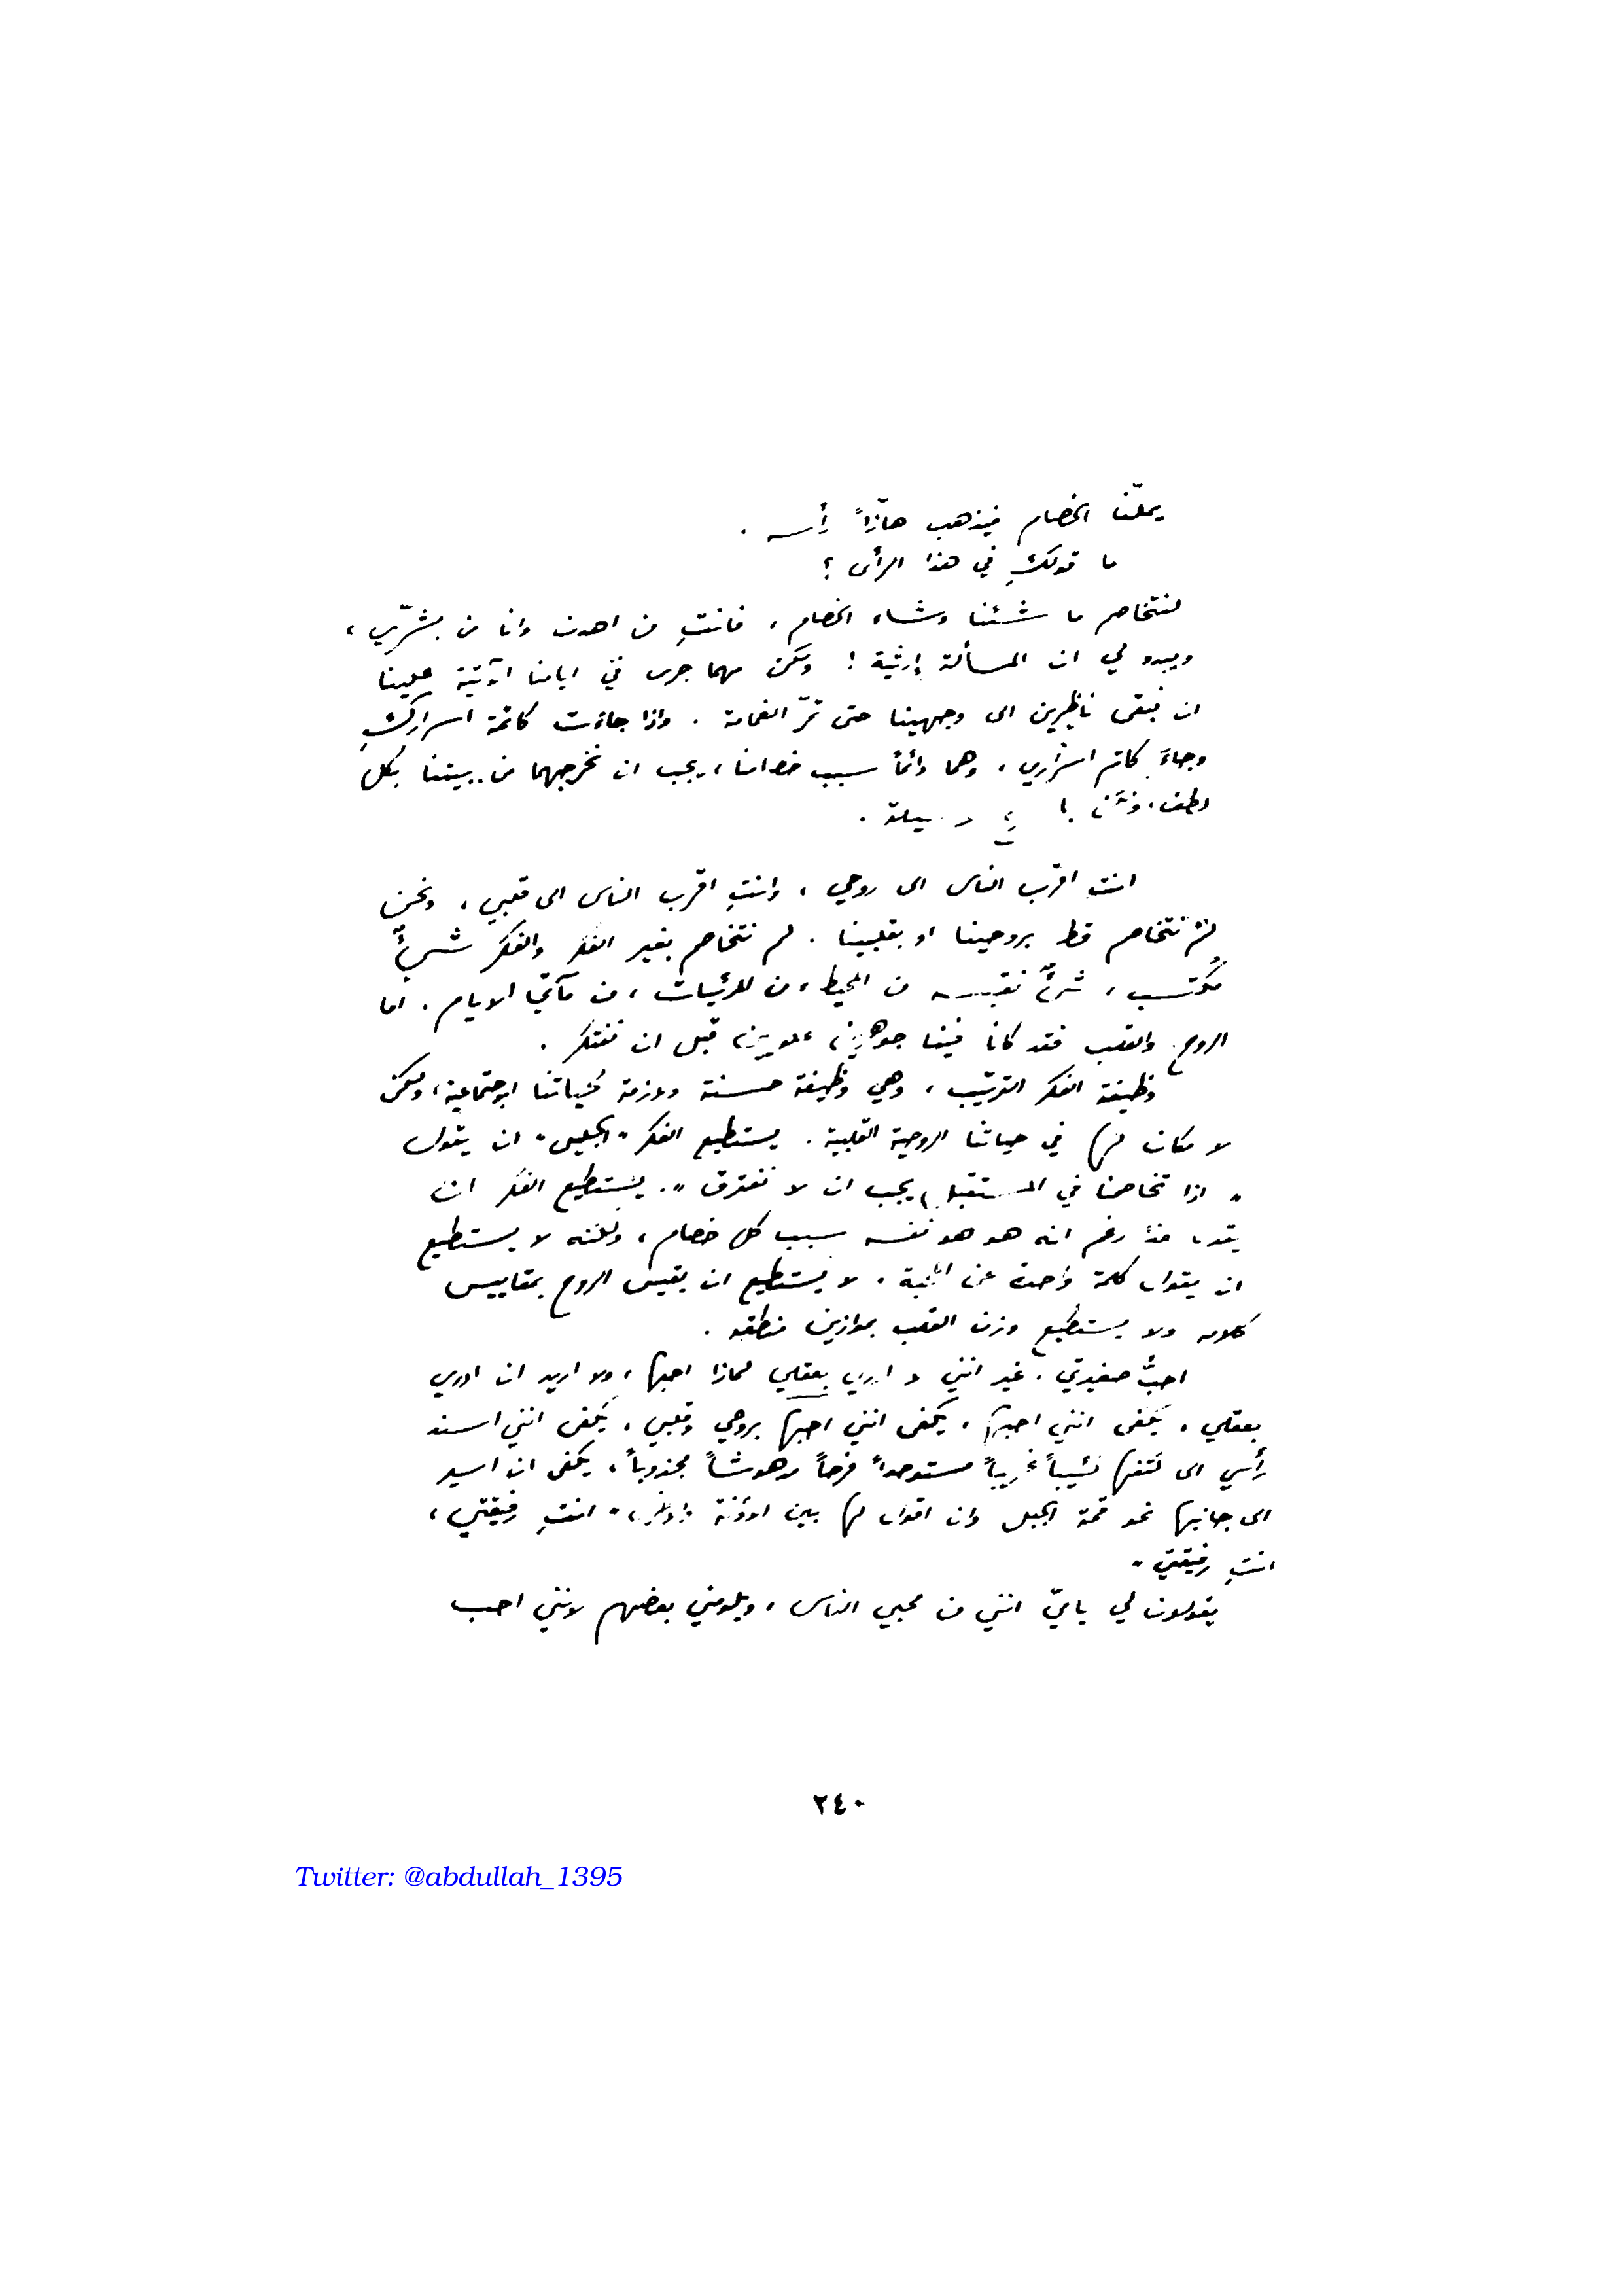 يملّنا الخصام فيذهب هازّاً رأسه .
ما قولكِ في هذا الرأى ؟
لنتخاصم ما شئنا وشاء الخصام ، فانتِ من اهدن وانا من بشرّي ،
ويبدو لي ان المسألة إرثية ! ولكن مهما جرى في ايامنا الآتية علينا
ان نبقى ناظرين الى وجهينا حتى تمرّ الغمامة . واذا جاءت كاتمة اسراركِ
وجاءَ كاتم اسراري ، وهما دائماً سبب خصامنا ، يجب ان نخرجهما من بيتنا بكل
لطف ، وسيلة .
انتِ اقرب الناس الى روحي ، وانتِ اقرب الناس الى قلبي ، ونحن
لم نتخاصم قط بروحينا او بقلبينا . لم نتخاصم بغير الفكر والفكر شيءٌ
مُكتسب ، شيءٌ نقتبسه من المحيط ، من المرئيات ، من مآتي الايام . اما
الروح والقلب فقد كانا فينا جوهرين علويين قبل ان نفتكر .
وظيفة الفكر الترتيب ، وهي وظيفة حسنة ولازمة لحياتنا الاجتماعية ، ولكن
لا مكان لها في حياتنا الروحية القلبية . يستطيع الفكر " الجليل " ان يقول
" اذا تخاصمنا في المستقبل يجب ان لا نفترق " . يستطيع الفكر ان
يقول هذا رغم انه هو هو نفسه سبب كل خصام ، ولكنه لا يستطيع
ان يقول كلمة واحدة عن المحبة . لا يستطيع ان يقيس الروح بمقاييس
كلامه ولا يستطيع وزن القلب بموازين منطقه .
احبُّ صغيرتي ، غير انني لا ادري بعقلي لماذا احبها ، ولا اريد ان ادري
بعقلي ، يكفى انني احبها ، يكفى انني احبها بروحي وقلبي ، يكفى انني اسند
رأسي الى كتفها كئيباً غريباً مستوحداً فرحاً مدهوشاً مجذوباً ، يكفى ان اسير
الى جانبها نحو قمة الجبل وان اقول لها بين الآونة والاخرى " انتِ رفيقتي ،
انتِ رفيقتي "
يقولون لي يا ميّ انني من محبي الناس ، ويلومني بعضهم لانني احب
٢٤٠
Twitter: @abdullah_1395